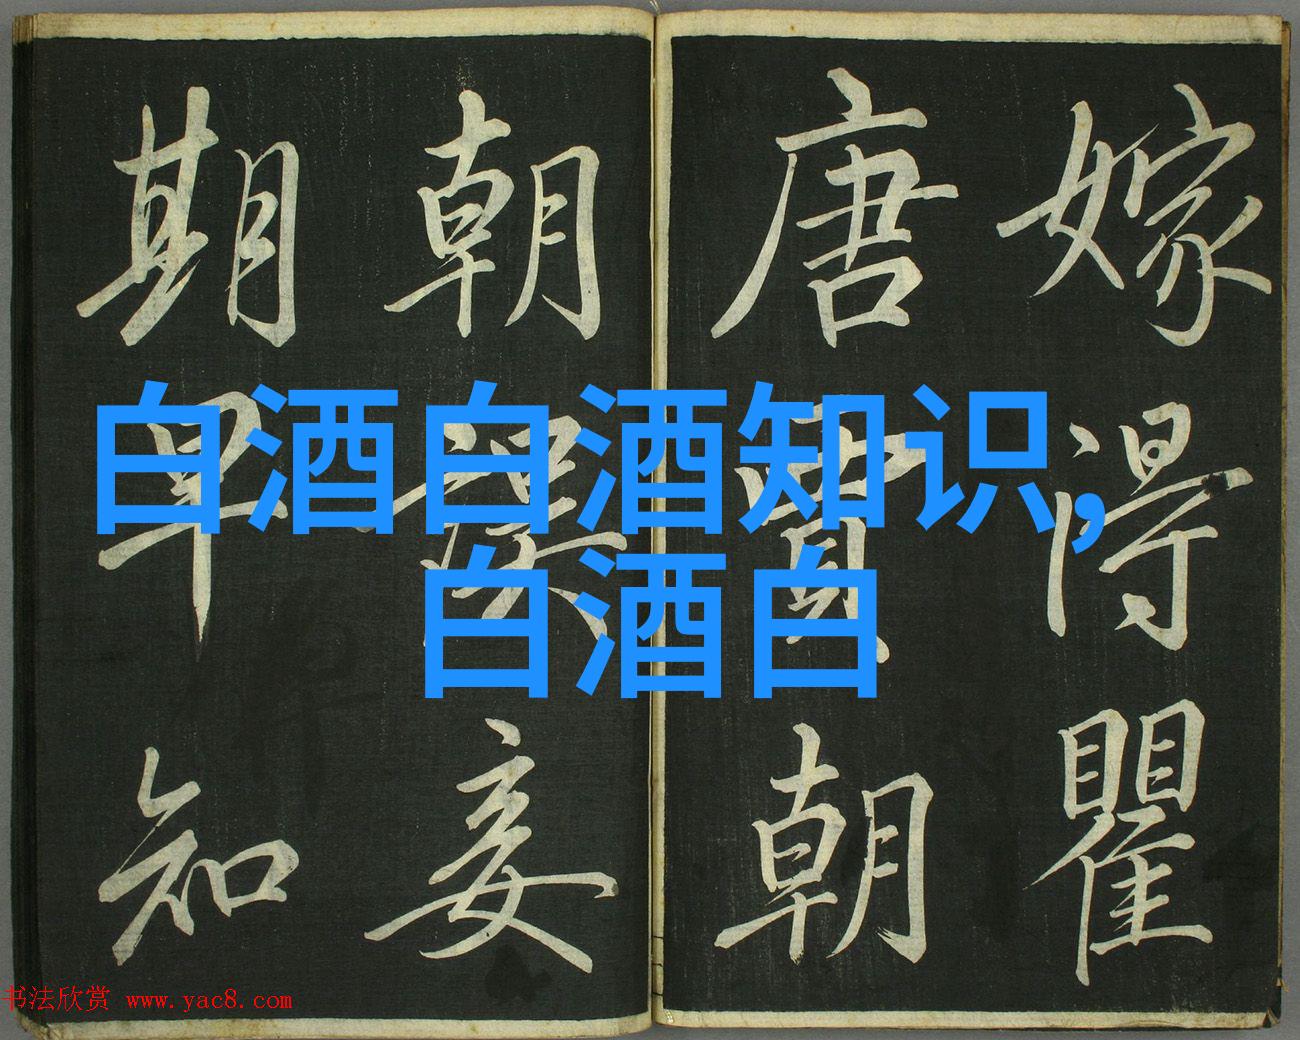 嫁得瞿
唐賈朝
朝誤妾
期早知
白酒白酒知识,
白酒白
书法欣赏 www.yac8.com